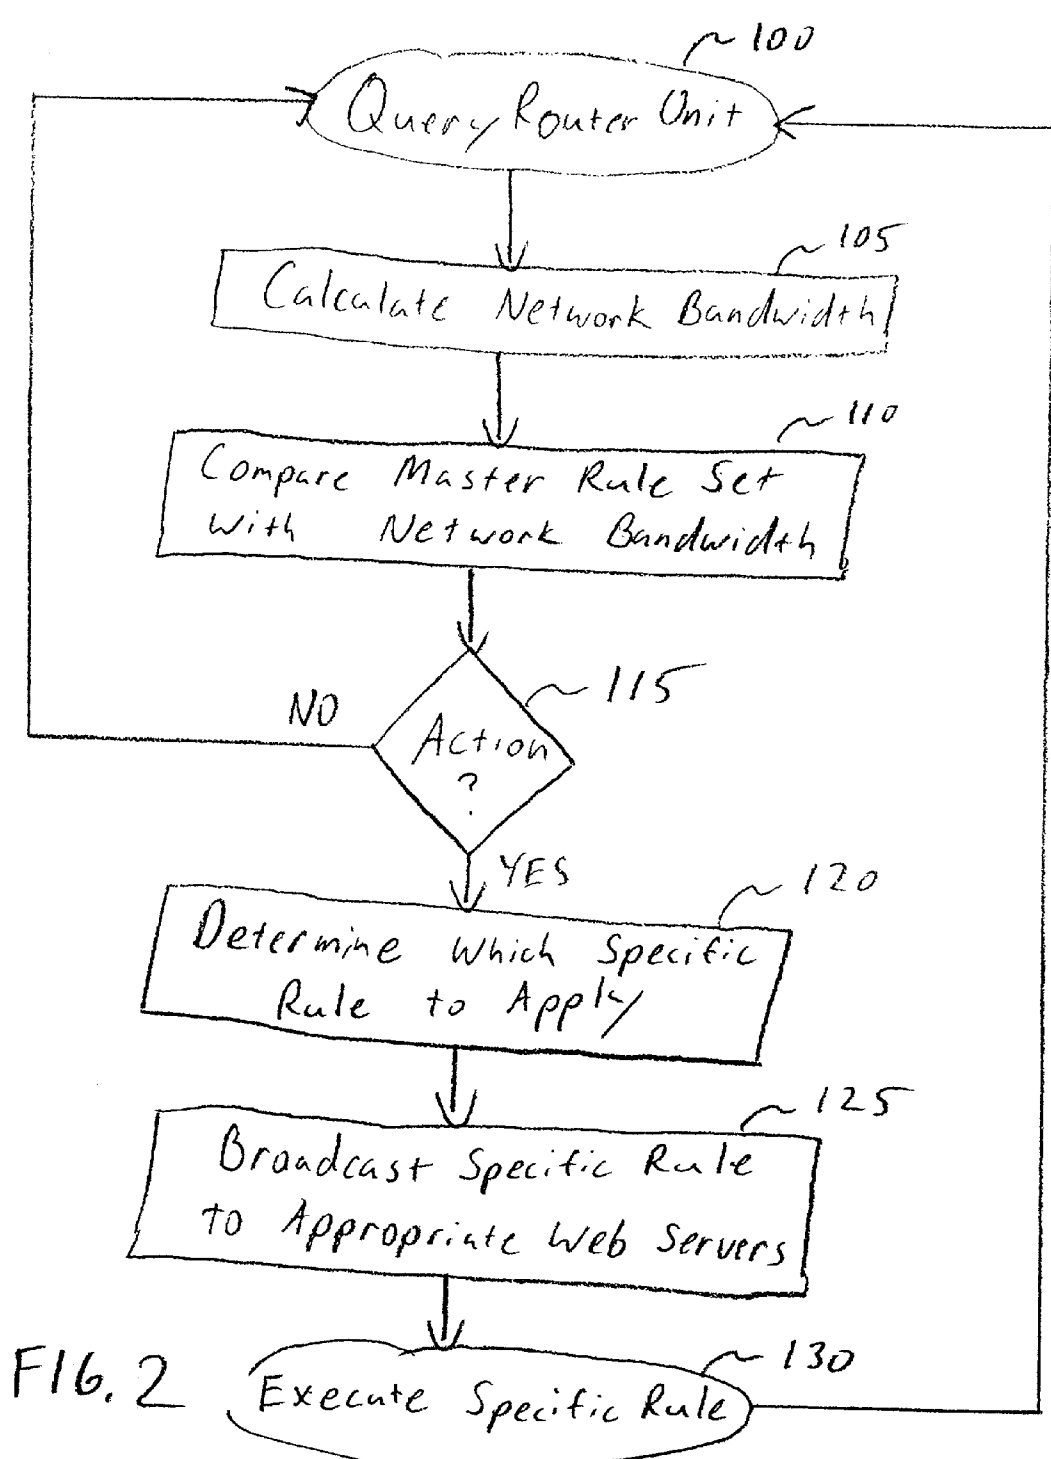 100
Query Router Unit
105
Calculate Network Bandwidth
110
Compare Master Rule Set
with Network Bandwidth
115
NO
Action
?
YES
120
Determine Which Specific
Rule to Apply
125
Broadcast Specific Rule
to Appropriate Web Servers
130
FIG. 2
Execute Specific Rule